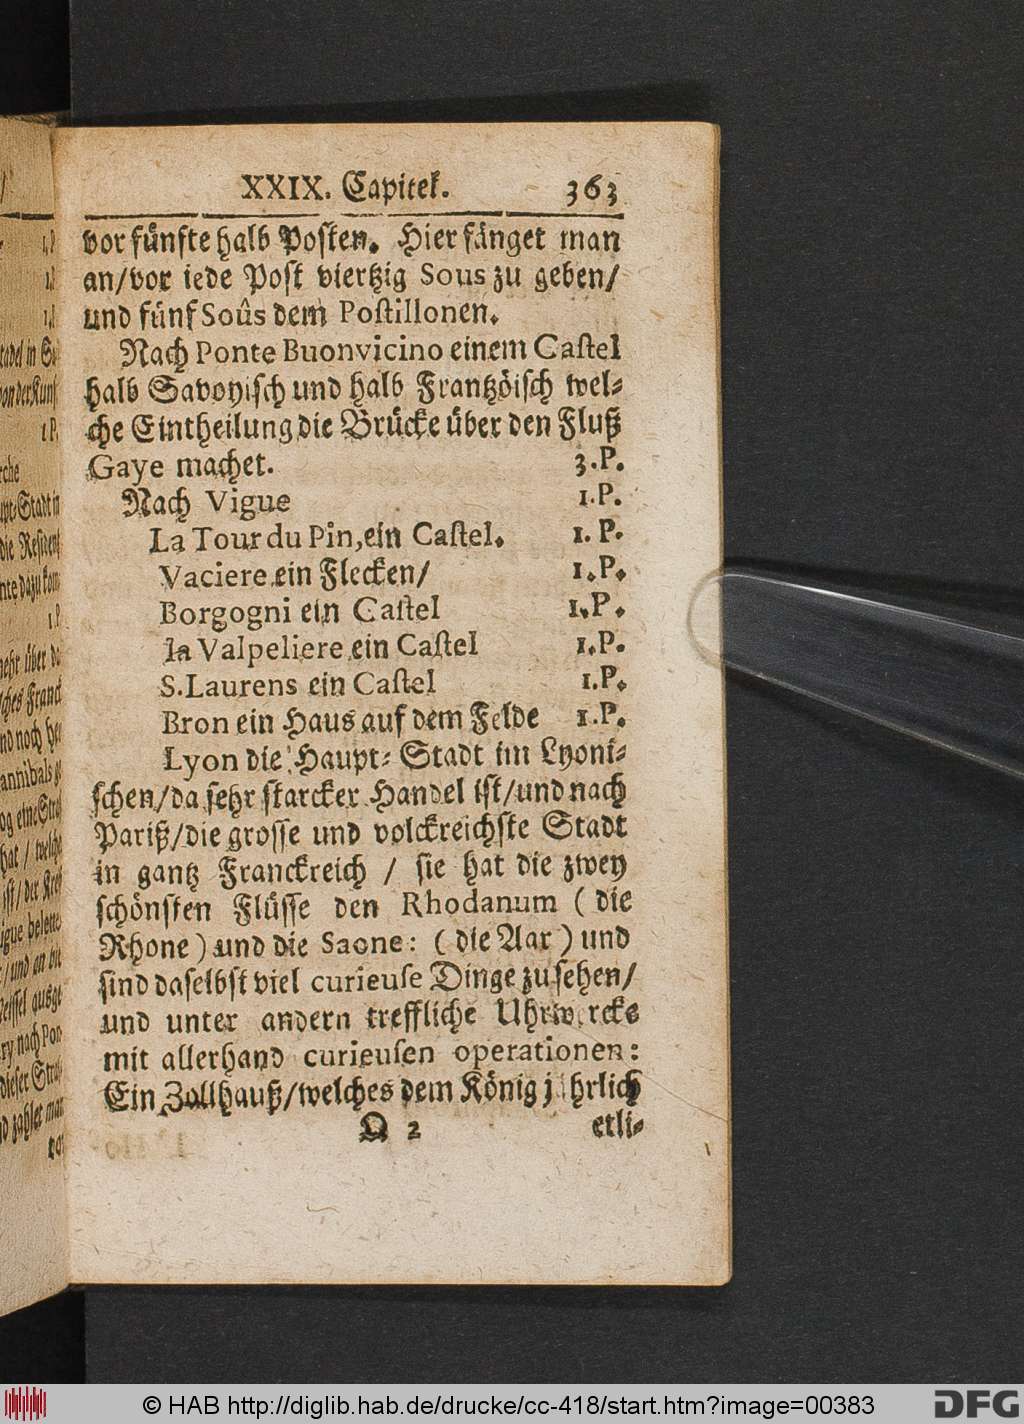 XXIX. Capitel. 363
vor fünfte halb Posten. Hier fänget man
an/vor iede Post viertzig Sous zu geben/
und fünf Soûs dem Postillonen.
Nach Ponte Buonvicino einem Castel
halb Savoyisch und halb Frantzöisch wel-
che Eintheilung die Brücke über den Fluß
Gaye machet. 3.P.
Nach Vigue 1.P.
La Tour du Pin, ein Castel. 1.P.
Vaciere ein Flecken/ 1.P.
Borgogni ein Castel 1.P.
la Valpeliere ein Castel 1.P.
S. Laurens ein Castel 1.P.
Bron ein Haus auf dem Felde 1.P.
Lyon die Haupt-Stadt im Lyoni-
schen/da sehr starcker Handel ist/und nach
Pariß/die grosse und volckreichste Stadt
in gantz Franckreich / sie hat die zwey
schönsten Flüsse den Rhodanum (die
Rhone) und die Saone: (die Aar) und
sind daselbst viel curieuse Dinge zu sehen/
und unter andern treffliche Uhrwercke
mit allerhand curieusen operationen:
Ein Zollhauß/welches dem König jährlich
Q 2 etli-
© HAB http://diglib.hab.de/drucke/cc-418/start.htm?image=00383
DFG